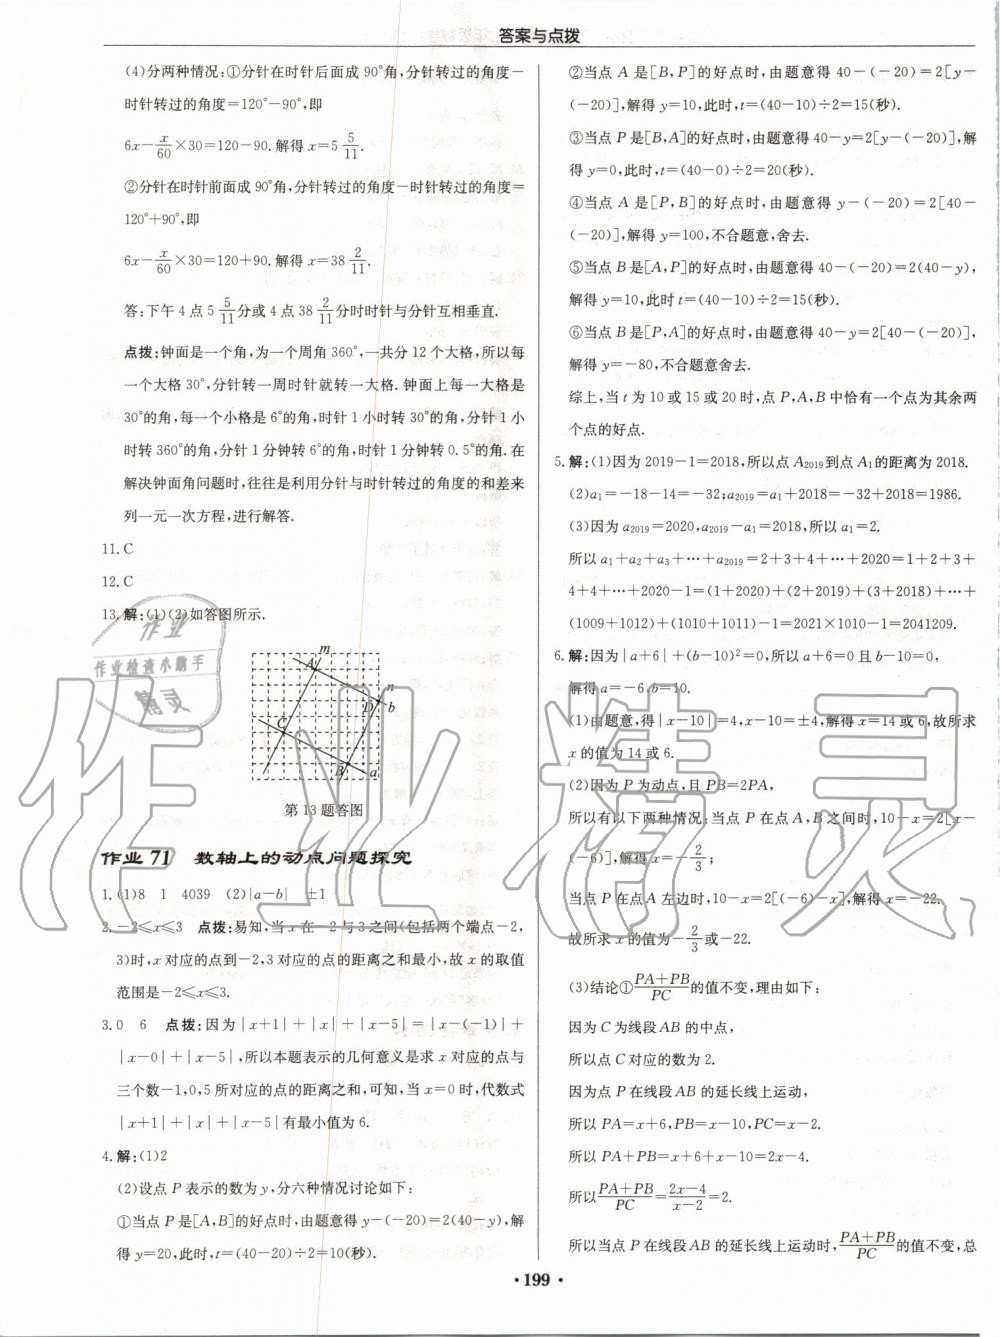 答案与点拨
(4)分两种情况:①分针在时针后面成90°角,分针转过的角度－
时针转过的角度=120°－90°,即
6x－x/60×30=120－90.解得x=5 5/11.
②分针在时针前面成90°角,分针转过的角度－时针转过的角度=
120°+90°,即
6x－x/60×30=120+90.解得x=38 2/11.
答:下午4点5 5/11分或4点38 2/11分时时针与分针互相垂直.
点拨:钟面是一个角,为一个周角360°,一共分12个大格,所以每
一个大格30°,分针转一周时针就转一大格.钟面上每一大格是
30°的角,每一个小格是6°的角,时针1小时转30°的角,分针1小
时转360°的角,分针1分钟转6°的角,时针1分钟转0.5°的角.在
解决钟面角问题时,往往是利用分针与时针转过的角度的和差来
列一元一次方程,进行解答.
11.C
12.C
13.解:(1)(2)如答图所示.
m
A
n
D
b
C
B
a
第13题答图
作业71 数轴上的动点问题探究
1.(1)8 1 4039 (2)|a－b| ±1
2.－2≤x≤3 点拨:易知,当x在－2与3之间(包括两个端点－2,
3)时,x对应的点到－2,3对应的点的距离之和最小,故x的取值
范围是－2≤x≤3.
3.0 6 点拨:因为|x+1|+|x|+|x－5|=|x－(－1)|+
|x－0|+|x－5|,所以本题表示的几何意义是求x对应的点与
三个数－1,0,5所对应的点的距离之和,可知,当x=0时,代数式
|x+1|+|x|+|x－5|有最小值为6.
4.解:(1)2
(2)设点P表示的数为y,分六种情况讨论如下:
①当点P是[A,B]的好点时,由题意得y－(－20)=2(40－y),解
得y=20,此时,t=(40－20)÷2=10(秒).
②当点A是[B,P]的好点时,由题意得40－(－20)=2[y－
(－20)],解得y=10,此时,t=(40－10)÷2=15(秒).
③当点P是[B,A]的好点时,由题意得40－y=2[y－(－20)],解
得y=0,此时,t=(40－0)÷2=20(秒).
④当点A是[P,B]的好点时,由题意得y－(－20)=2[40－
(－20)],解得y=100,不合题意,舍去.
⑤当点B是[A,P]的好点时,由题意得40－(－20)=2(40－y),
解得y=10,此时t=(40－10)÷2=15(秒).
⑥当点B是[P,A]的好点时,由题意得40－y=2[40－(－20)],
解得y=－80,不合题意舍去.
综上,当t为10或15或20时,点P,A,B中恰有一个点为其余两
个点的好点.
5.解:(1)因为2019－1=2018,所以点A2019到点A1的距离为2018.
(2)a1=－18－14=－32;a2019=a1+2018=－32+2018=1986.
(3)因为a2019=2020,a2019－a1=2018,所以a1=2.
所以a1+a2+a3+…+a2019=2+3+4+…+2020=1+2+3+
4+4+…+2020－1=(1+2020)+(2+2019)+(3+2018)+…+
(1009+1012)+(1010+1011)－1=2021×1010－1=2041209.
6.解:因为|a+6|+(b－10)²=0,所以a+6=0且b－10=0,
解得a=－6,b=10.
(1)由题意,得|x－10|=4,x－10=±4,解得x=14或6,故所求
x的值为14或6.
(2)因为P为动点,且PB=2PA,
所以有以下两种情况:当点P在点A,B之间时,10－x=2[x－
(－6)],解得x=－2/3;
当点P在点A左边时,10－x=2[(－6)－x],解得x=－22.
故所求x的值为－2/3或－22.
(3)结论①(PA+PB)/PC的值不变,理由如下:
因为C为线段AB的中点,
所以点C对应的数为2.
因为点P在线段AB的延长线上运动,
所以PA=x+6,PB=x－10,PC=x－2.
所以PA+PB=x+6+x－10=2x－4.
所以(PA+PB)/PC=(2x－4)/(x－2)=2.
所以当点P在线段AB的延长线上运动时,(PA+PB)/PC的值不变,总
·199·
作业
作业检查小助手
精灵
作业精灵